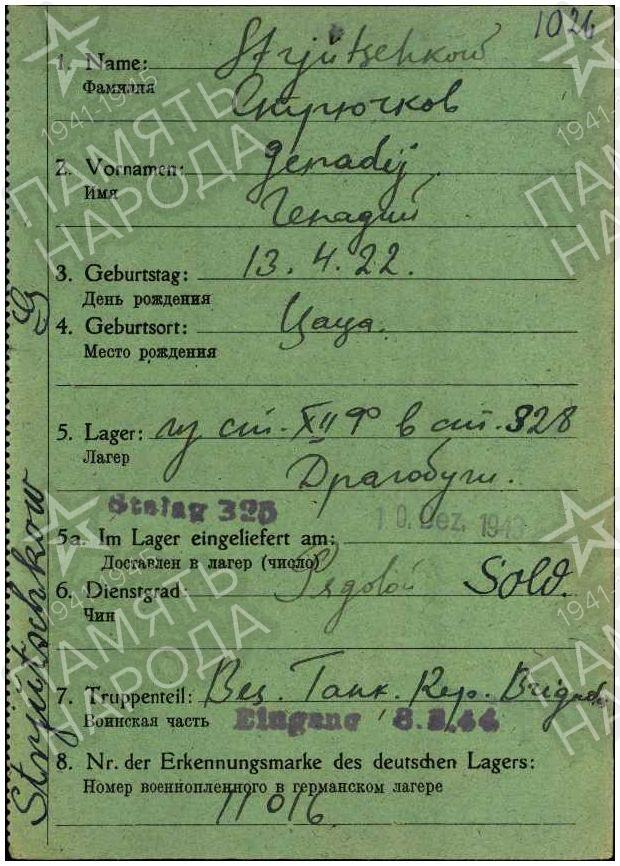 1026
1. Name: Strjutschkow
Фамилия
Стрючков
2. Vornamen: Genadij
Имя
Генадий
3. Geburtstag: 13. 4. 22.
День рождения
4. Geburtsort: Цаца.
Место рождения
5. Lager: ст. XII F в ст. 328
Лагер
Драгобуги.
Stalag 325
10. Dez. 1943
5a. Im Lager eingeliefert am:
Доставлен в лагер (число)
6. Dienstgrad: Sold.
Чин
7. Truppenteil: Танк. Rep. Brigade
Воинская часть
Eingang 8.2.44
8. Nr. der Erkennungsmarke des deutschen Lagers:
Номер военнопленного в германском лагере
11016
Strjütschkow G
1941-1945
ПАМЯТЬ
НАРОДА
1941-1945
ПАМЯТЬ
НАРОДА